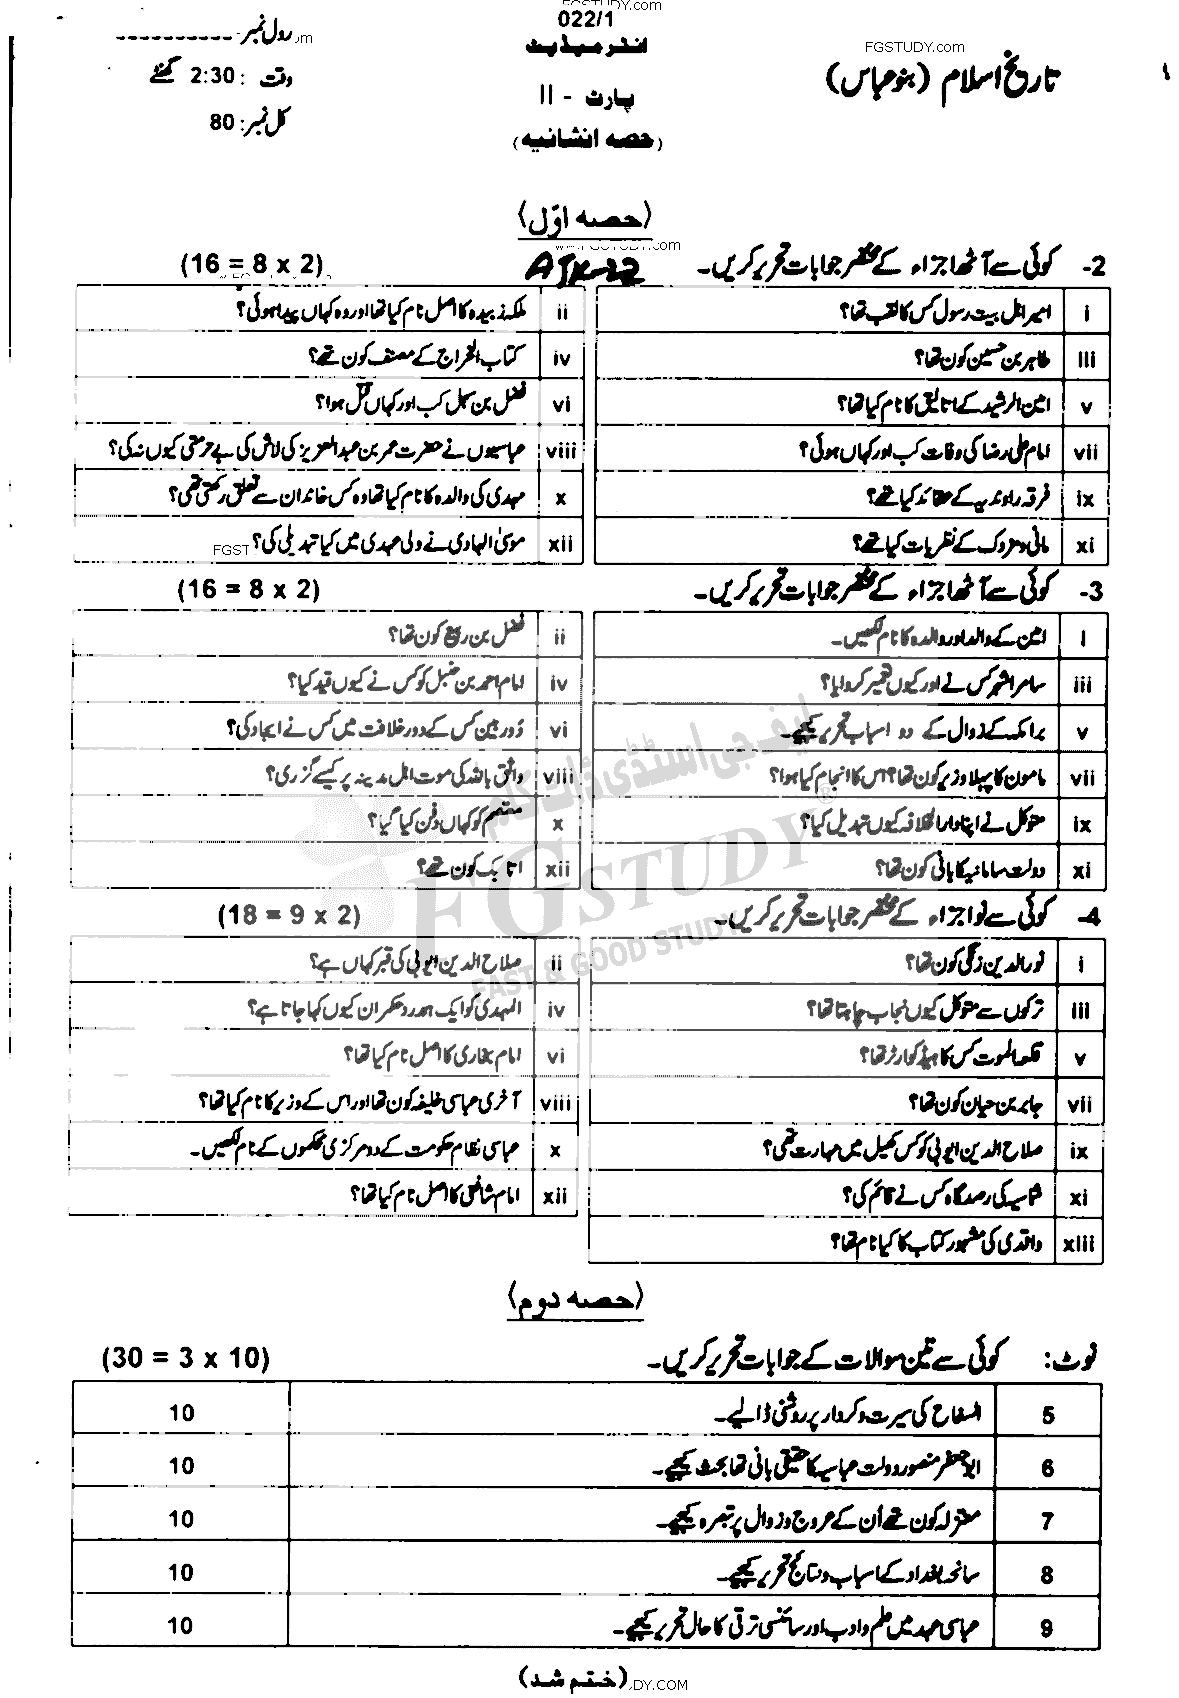 FGSTUDY.com
022/1
رول نمبر: ----------
انٹرمیڈیٹ
FGSTUDY.com
تاریخ اسلام (بنو عباس)
وقت : 2:30 گھنٹے
پارٹ - II
کل نمبر: 80
(حصہ انشائیہ)
(حصہ اوّل)
www.FGSTUDY.com
2- کوئی سے آٹھ اجزاء کے مختصر جوابات تحریر کریں۔ (16 = 8 x 2)
i امیر اہل بیت رسول کس کا لقب تھا؟
ii ملکہ زبیدہ کا اصل نام کیا تھا اور وہ کہاں پیدا ہوئی؟
iii طاہر بن حسین کون تھا؟
iv کتاب الخراج کے مصنف کون تھے؟
v امین الرشید کے اتالیق کا نام کیا تھا؟
vi فضل بن سہل کب اور کہاں قتل ہوا؟
vii امام علی رضا کی وفات کب اور کہاں ہوئی؟
viii عباسیوں نے حضرت عمر بن عبدالعزیز کی لاش کی بے حرمتی کیوں نہ کی؟
ix فرقہ راوندیہ کے عقائد کیا تھے؟
x مہدی کی والدہ کا نام کیا تھا وہ کس خاندان سے تعلق رکھتی تھی؟
xi مانی و مزدک کے نظریات کیا تھے؟
xii موسیٰ الہادی نے ولی عہدی میں کیا تبدیلی کی؟
FGST
3- کوئی سے آٹھ اجزاء کے مختصر جوابات تحریر کریں۔ (16 = 8 x 2)
i امین کے والد اور والدہ کا نام لکھیں۔
ii فضل بن ربیع کون تھا؟
iii سامرا شہر کس نے اور کیوں تعمیر کروایا؟
iv امام احمد بن حنبل کو کس نے کیوں قید کیا؟
v برامکہ کے زوال کے دو اسباب تحریر کیجیے۔
vi دُوربین کس کے دور خلافت میں کس نے ایجاد کی؟
vii مامون کا پہلا وزیر کون تھا؟ اس کا انجام کیا ہوا؟
viii واثق باللہ کی موت اہل مدینہ پر کیسے گزری؟
ix متوکل نے اپنا دارالخلافہ کیوں تبدیل کیا؟
x معتصم کو کہاں دفن کیا گیا؟
xi دولت سامانیہ کا بانی کون تھا؟
xii اتابک کون تھے؟
ایف جی اسٹڈی ڈاٹ کام
FGSTUDY®
FAST & GOOD STUDY
4- کوئی سے نو اجزاء کے مختصر جوابات تحریر کریں۔ (18 = 9 x 2)
i نور الدین زنگی کون تھا؟
ii صلاح الدین ایوبی کی قبر کہاں ہے؟
iii ترکوں سے متوکل کیوں نجاب چاہتا تھا؟
iv المہدی کو ایک ہمدرد حکمران کیوں کہا جاتا ہے؟
v قلعہ الموت کس کا ہیڈ کوارٹر تھا؟
vi امام بخاری کا اصل نام کیا تھا؟
vii جابر بن حیان کون تھا؟
viii آخری عباسی خلیفہ کون تھا اور اس کے وزیر کا نام کیا تھا؟
ix صلاح الدین ایوبی کو کس کھیل میں مہارت تھی؟
x عباسی نظام حکومت کے دو مرکزی محکموں کے نام لکھیں۔
xi شماسیہ کی رصدگاہ کس نے قائم کی؟
xii امام شافعی کا اصل نام کیا تھا؟
xiii واقدی کی مشہور کتاب کا کیا نام تھا؟
(حصہ دوم)
نوٹ: کوئی سے تین سوالات کے جوابات تحریر کریں۔ (30 = 3 x 10)
5 السفاح کی سیرت و کردار پر روشنی ڈالیے۔ 10
6 ابو جعفر منصور دولت عباسیہ کا حقیقی بانی تھا بحث کیجیے۔ 10
7 معتزلہ کون تھے اُن کے عروج و زوال پر تبصرہ کیجیے۔ 10
8 سانحہ بغداد کے اسباب و نتائج تحریر کیجیے۔ 10
9 عباسی عہد میں علم و ادب اور سائنسی ترقی کا حال تحریر کیجیے۔ 10
(ختم شد)
DY.COM